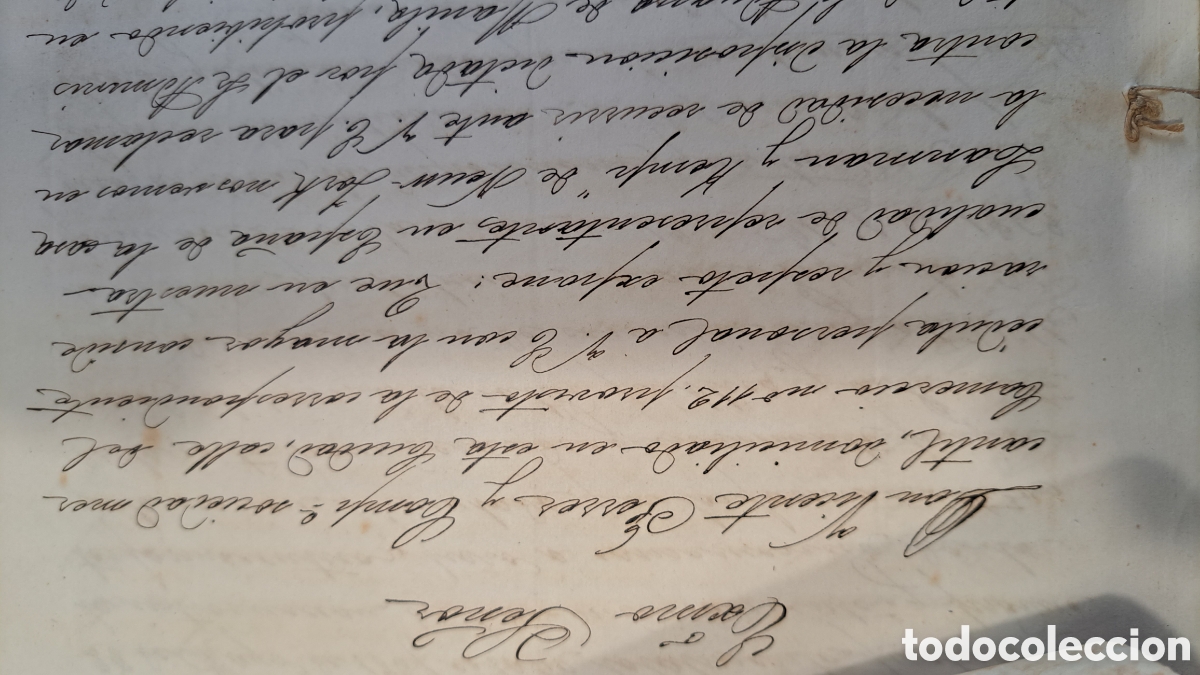 Excmo Señor
Don Vicente Ferrer y Compª sociedad mer
cantil, domiciliado en esta Ciudad, calle del
Comercio no 112, provisto de la correspondiente
cédula personal, a V. E con la mayor conside
racion y respeto expone: Que en nuestra
cualidad de representantes, en España de la casa
Lanman y Kemp" de New York nos vemos en
la necesidad de recurrir ante V. E. para reclamar
contra la disposicion dictada por el Sr Adminis
de Manila, prohibiendo en
todocoleccion